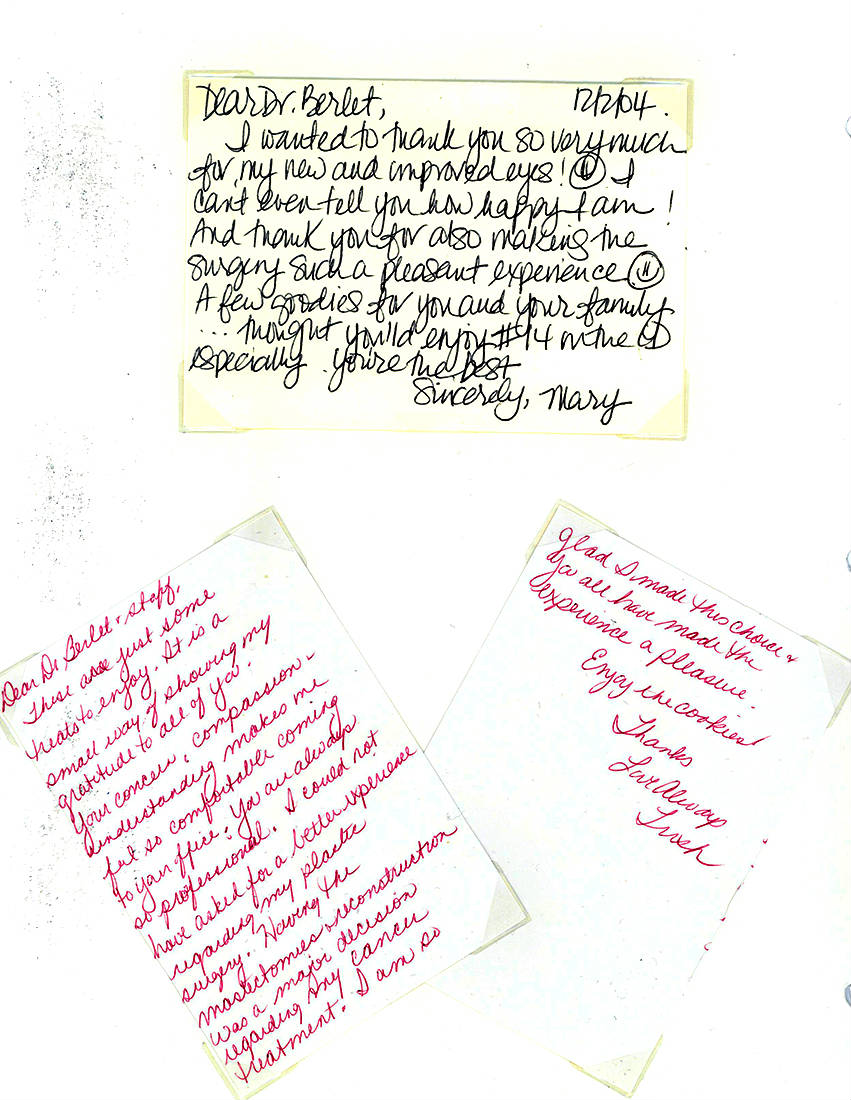 Dear Dr. Berlet, 12/2/04.
I wanted to thank you so very much
for my new and improved eyes! I
can't even tell you how happy I am!
And thank you for also making the
surgery such a pleasant experience
A few goodies for you and your family
... thought you'ld enjoy #14 on the CD
especially. You're the best
Sincerely, Mary
Dear Dr Berlet & staff,
These are just some
treats to enjoy. It is a
small way of showing my
gratitude to all of you.
Your concern, compassion &
understanding makes me
feel so comfortable coming
to your office. You are always
so professional. I could not
have asked for a better experience
regarding my plastic
surgery. Having the
mastectomies & reconstruction
was a major decision
regarding my cancer
treatment. I am so
glad I made this choice &
you all have made the
experience a pleasure.
Enjoy the cookies!
Thanks
Luv Always
Trish